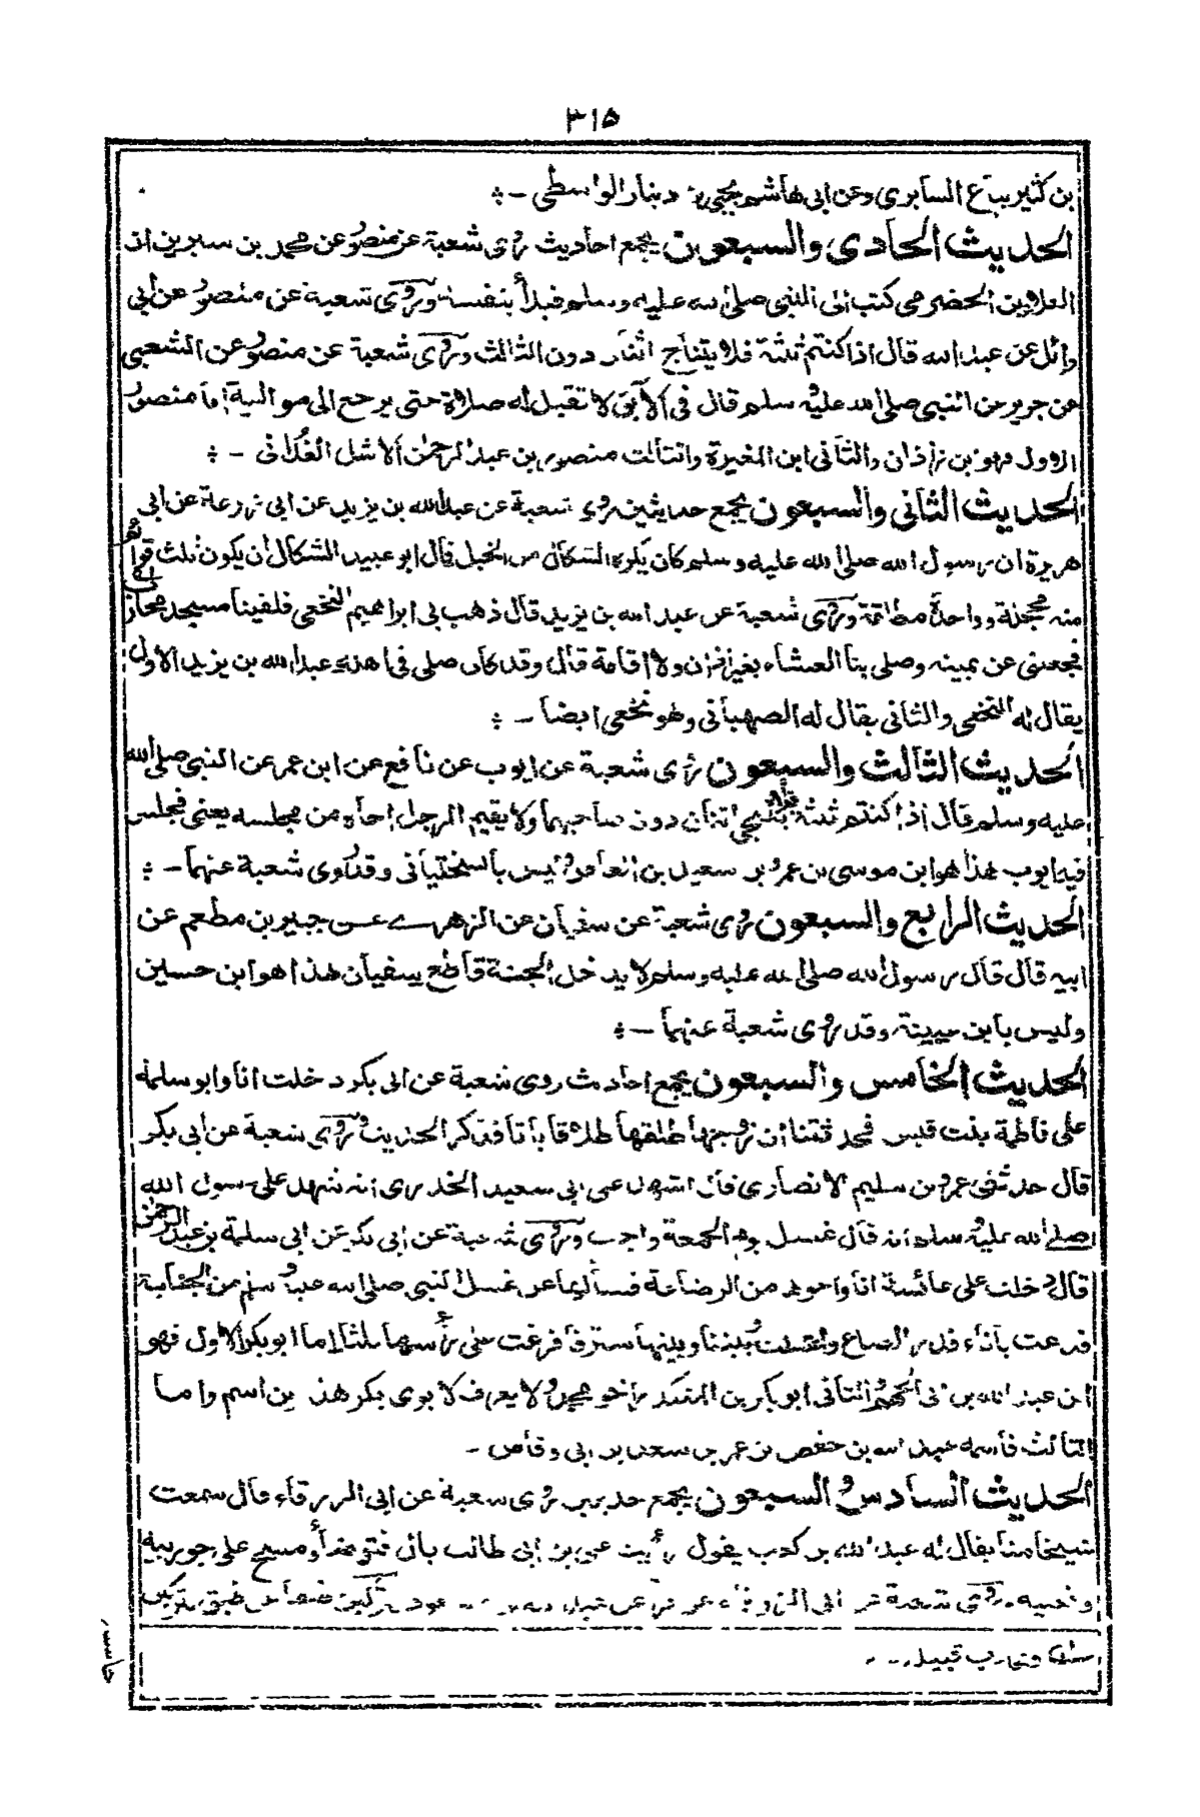 ٣١٥
بن كثير بياع السابري وعن ابى هاشم يحيى بن دينار الواسطى -
الحديث الحادى والسبعون يجمع احاديث روى شعبة عن منصور عن محمد بن سيرين ان
العلاء بن الحضرمى كتب الى النبى صلى الله عليه وسلم فبدأ بنفسه وروى شعبة عن منصور عن ابى
وائل عن عبد الله قال اذا كنتم ثلثة فلا يتناج اثنان دون الثالث وروى شعبة عن منصور عن الشعبى
عن جرير عن النبى صلى الله عليه وسلم قال فى الآبق لا تقبل له صلاة حتى يرجع الى مواليه اما منصور
الاول فهو بن زاذان والثانى ابن المغيرة والثالث منصور بن عبد الرحمن الاشل الغدانى -
الحديث الثانى والسبعون يجمع حديثين روى شعبة عن عبد الله بن يزيد عن ابى زرعة عن ابى
هريرة ان رسول الله صلى الله عليه وسلم كان يكره الشكال من الخيل قال ابو عبيد الشكال ان يكون ثلث قوائم
منه محجلة وواحدة مطلقة وروى شعبة عن عبد الله بن يزيد قال ذهب بى ابراهيم النخعى فلقينا مسجد محارب
فجعلنى عن يمينه وصلى بنا العشاء بغير اذان ولا اقامة قال وقد كان صلى فى اهله وعبد الله بن يزيد الاول
يقال له النخعى والثانى يقال له الصهبانى وهو نخعى ايضا -
الحديث الثالث والسبعون روى شعبة عن ايوب عن نافع عن ابن عمر عن النبى صلى الله
عليه وسلم قال اذا كنتم ثلثة فلا يتناجى اثنان دون صاحبهما ولا يقيم الرجل اخاه من مجلسه يعنى فيجلس
فيه ايوب هذا هو ابن موسى بن عمرو بن سعيد بن العاص وليس بالسختيانى وقد روى شعبة عنهما -
الحديث الرابع والسبعون روى شعبة عن سفيان عن الزهرى عن جبير بن مطعم عن
ابيه قال قال رسول الله صلى الله عليه وسلم لا يدخل الجنة قاطع سفيان هذا هو ابن حسين
وليس بابن عيينة وقد روى شعبة عنهما -
الحديث الخامس والسبعون يجمع احاديث روى شعبة عن ابى بكر دخلت انا وابو سلمة
على فاطمة بنت قيس فحدثتنا ان زوجها طلقها طلاقا باتا فذكر الحديث وروى شعبة عن ابى بكر
قال حدثنى عمرو بن سليم الانصارى قال اشهد على ابى سعيد الخدرى انه شهد على رسول الله
صلى الله عليه وسلم انه قال غسل يوم الجمعة واجب وروى شعبة عن ابى بكر عن ابى سلمة بن عبد الرحمن
قال دخلت على عائشة انا واخوها من الرضاعة فسألها عن غسل النبى صلى الله عليه وسلم من الجنابة
فدعت باناء قدر الصاع واغتسلت وبيننا وبينها ستر فافرغت على رأسها ثلثا اما ابو بكر الاول فهو
ابن عبد الله بن ابى الجهم والثانى ابو بكر بن المنكدر اخو محمد ولا يعرف لابوى بكر هذين اسم واما
الثالث فاسمه عبد الله بن حفص بن عمر بن سعد بن ابى وقاص -
الحديث السادس والسبعون يجمع حديثين روى شعبة عن ابى الورقاء قال سمعت
شيخا منا يقال له عبد الله بن كعب يقول رأيت على بن ابى طالب بال فتوضأ ومسح على جوربيه
ونعليه وروى شعبة عن ابى
قبيلة